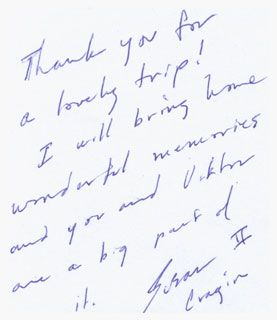 Thank you for
a lovely trip!
I will bring home
wonderful memories
and you and Viktor
are a big part of
it. Susan II
Cragin